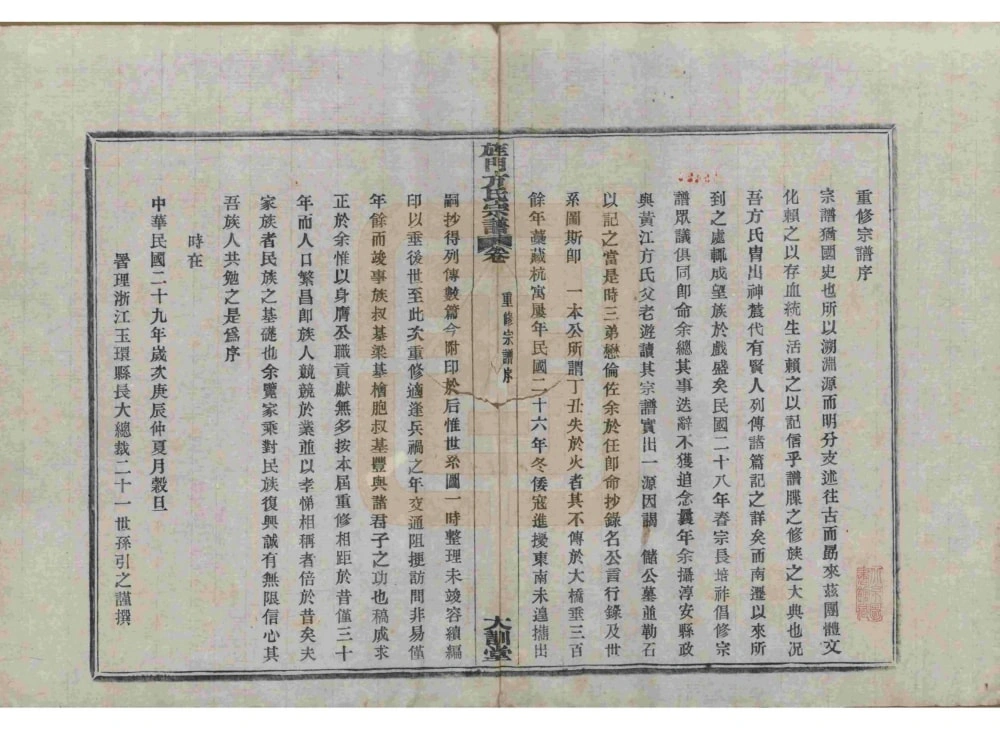 重修宗譜序
宗譜猶國史也所以溯淵源而明分支述往古而勗來茲團體文
化賴之以存血統生活賴之以記信乎譜牒之修族之大典也況
吾方氏胄出神農代有賢人列傳諸篇記之詳矣而南遷以來所
到之處輒成望族於戲盛矣民國二十八年春宗長培祚倡修宗
譜眾議俱同卽命余總其事迭辭不獲追念曩年余攝淳安縣政
與黃江方氏父老遊讀其宗譜實出一源因謁 儲公墓並勒石
以記之當是時三弟懋倫佐余於任卽命抄錄名公言行錄及世
系圖斯卽 一本公所謂丁丑失於火者其不傳於大橋垂三百
餘年藁藏杭寓屢年民國二十六年冬倭寇進擾東南未遑攜出
旌門方氏宗譜
卷
重修宗譜序
大訓堂
嗣抄得列傳數篇今附印於后惟世系圖一時整理未竣容續編
印以垂後世至此次重修適逢兵禍之年交通阻梗訪問非易僅
年餘而竣事族叔基梁基檜胞叔基豐與諸君子之功也稿成求
正於余惟以身膺公職貢獻無多按本屆重修相距於昔僅三十
年而人口繁昌卽族人競競於業並以孝悌相稱者倍於昔矣夫
家族者民族之基礎也余覽家乘對民族復興誠有無限信心其
吾族人共勉之是爲序
時在
中華民國二十九年歲次庚辰仲夏月穀旦
署理浙江玉環縣長大總裁二十一世孫引之謹撰